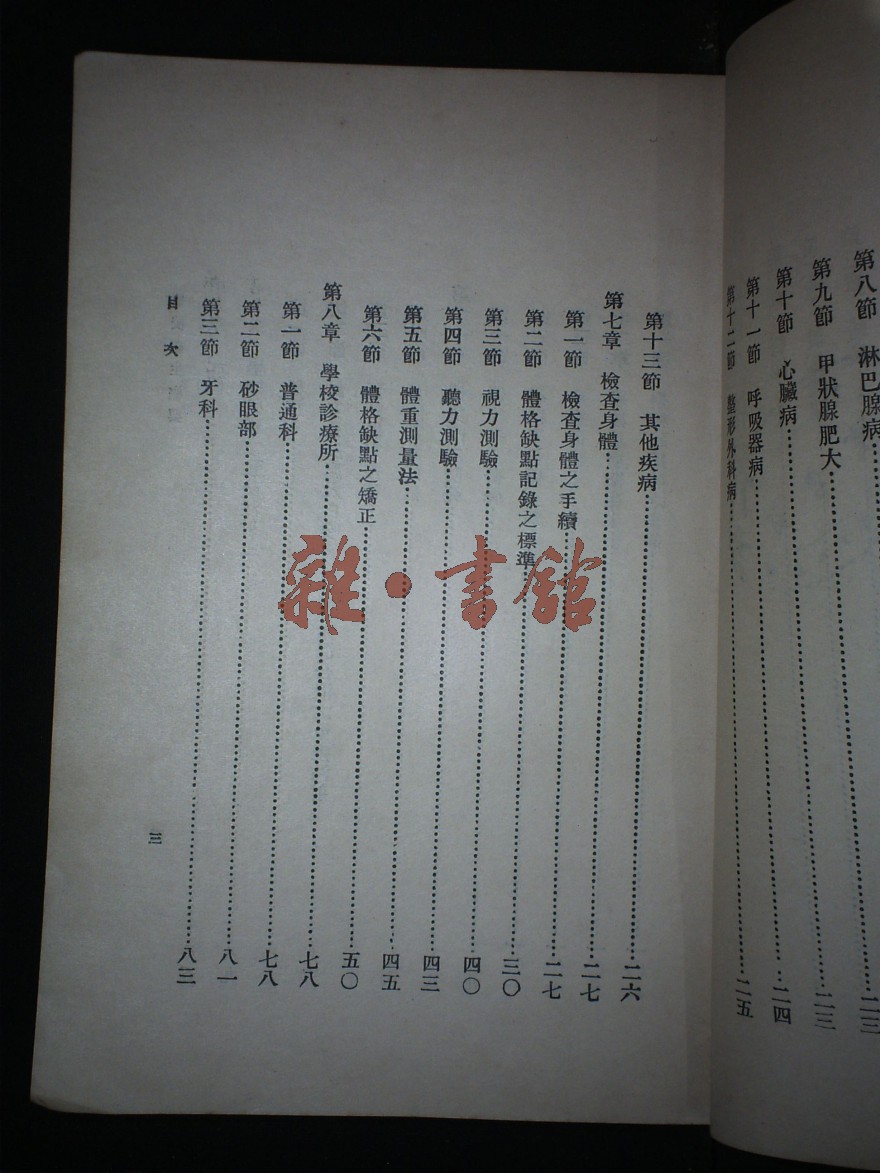 第八節　淋巴腺病……二三
第九節　甲狀腺肥大……二三
第十節　心臟病……二四
第十一節　呼吸器病……二五
第十二節　整形外科病……二五
第十三節　其他疾病……二六
第七章　檢查身體……二七
第一節　檢查身體之手續……二七
第二節　體格缺點記錄之標準……三〇
第三節　視力測驗……四〇
第四節　聽力測驗……四三
第五節　體重測量法……四五
第六節　體格缺點之矯正……五〇
第八章　學校診療所……七八
第一節　普通科……七八
第二節　砂眼部……八一
第三節　牙科……八三
目次
三
雜·書館